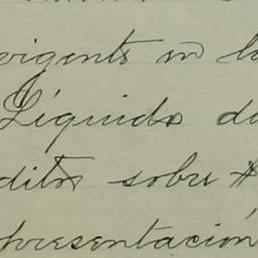 vigents en la
Líquido de
ditos sobre
presentación